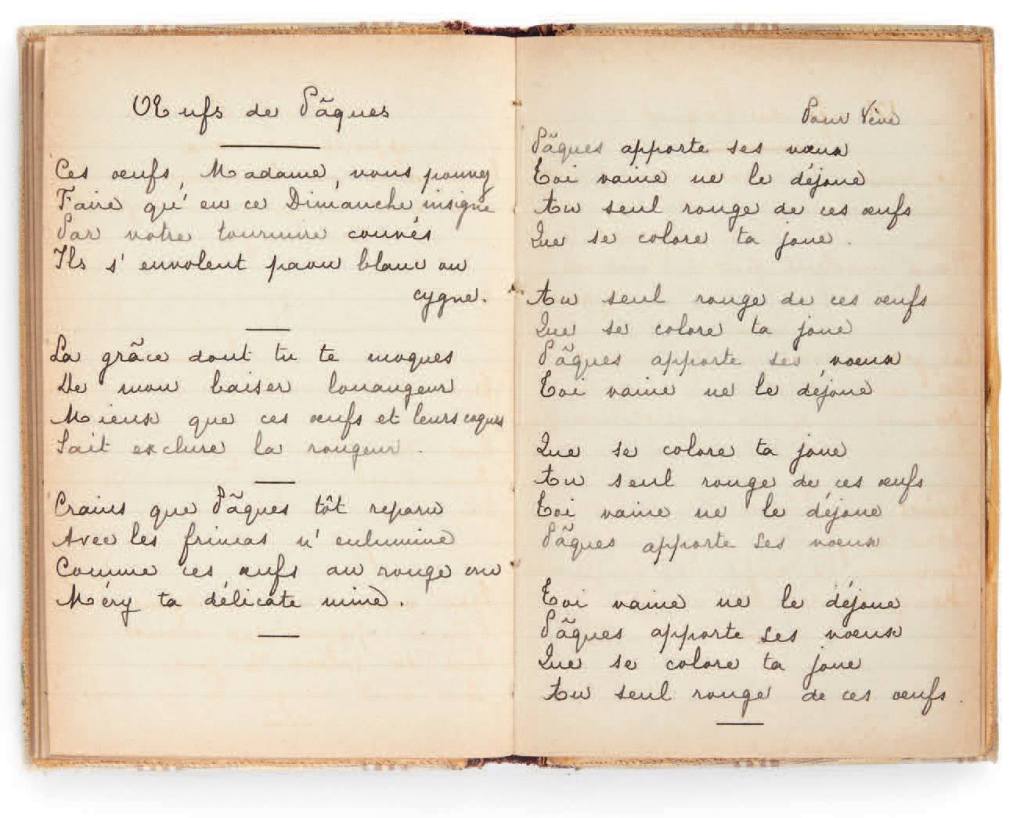 Œufs de Pâques
Ces œufs, Madame, vous pouvez
Faire qu'en ce Dimanche insigne
Par votre tournure couvés
Ils s'envolent paon blanc ou
cygne.
La grâce dont tu te moques
De mon baiser louangeur
Mieux que ces œufs et leurs coques
Sait exclure la rougeur.
Crains que Pâques tôt reparu
Avec les frimas n'enlumine
Comme ces œufs au rouge cru
Méry ta délicate mine.
Pour Vève
Pâques apporte ses vœux
Toi vaine ne le déjoue
Au seul rouge de ces œufs
Que se colore ta joue.
Au seul rouge de ces œufs
Que se colore ta joue
Pâques apporte ses vœux
Toi vaine ne le déjoue
Que se colore ta joue
Au seul rouge de ces œufs
Toi vaine ne le déjoue
Pâques apporte ses vœux
Toi vaine ne le déjoue
Pâques apporte ses vœux
Que se colore ta joue
Au seul rouge de ces œufs.